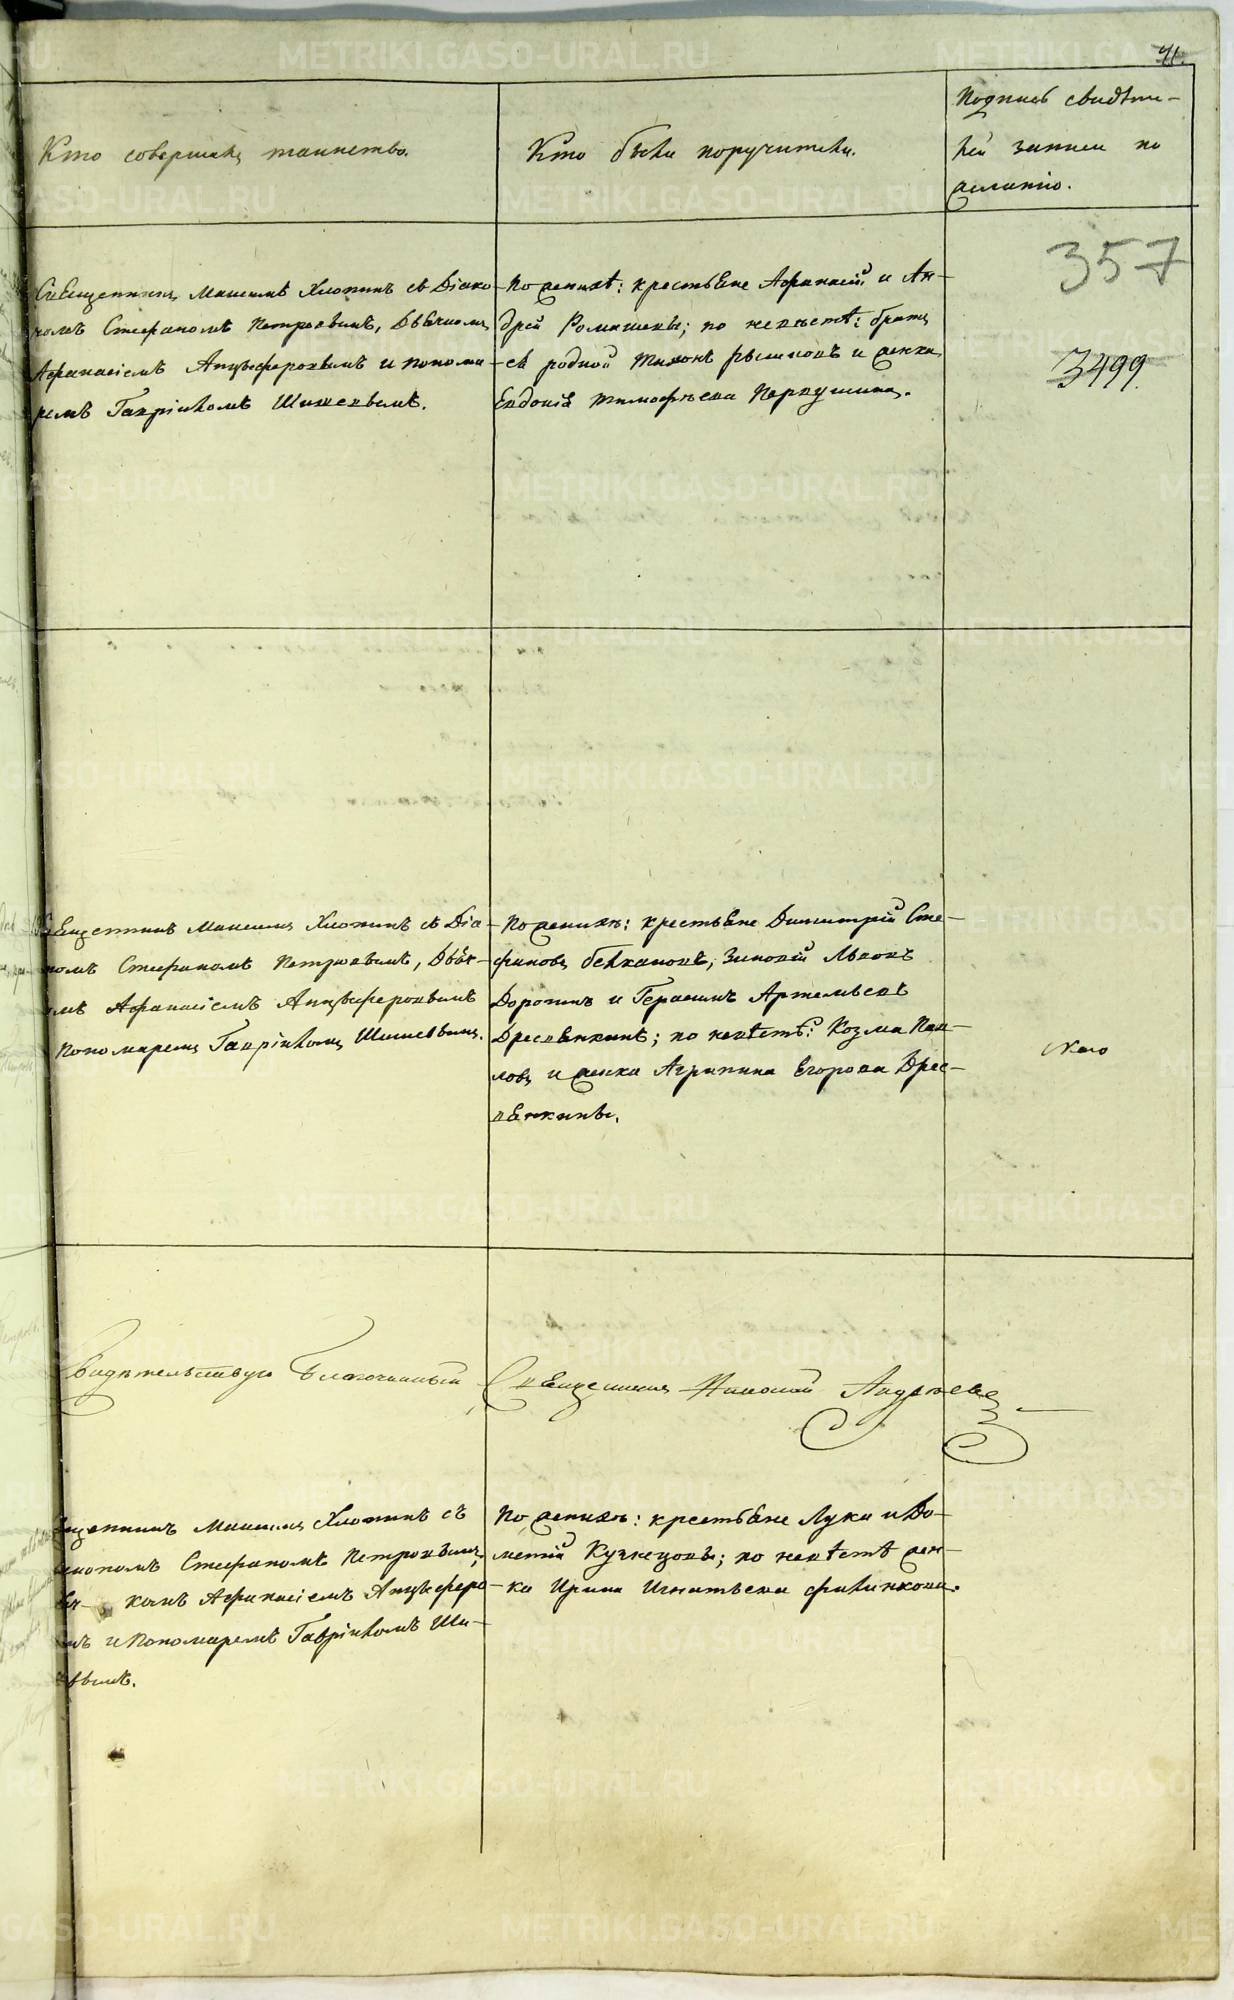 41.
Кто совершалъ таинство.
Кто были поручители.
Подпись свидѣте-
лей записи по
желанію.
357
3499.
Священникъ Максимъ Хлопинъ съ Діако-
номъ Стефаномъ Петровымъ, Дьячкомъ
Афанасіемъ Анцыферовымъ и понома-
ремъ Гавріиломъ Шишевымъ.
По женихѣ: крестьяне Афанасій и Ан-
дрей Ромашевы; по невѣстѣ: братъ
ея родной Тихонъ и женка
Евдокія Тимофѣева
Священникъ Максимъ Хлопинъ съ Діа-
номъ Стефаномъ Петровымъ, Дьяч-
омъ Афанасіемъ Анцыферовымъ
Пономаремъ Гавріиломъ Шишевымъ.
По женихѣ: крестьяне Димитрій Сте-
фановъ Зиновій Львовъ
Дорогинъ и Герасимъ Артемьевъ
Дресвянкинъ; по невѣстѣ: Козма Пав-
ловъ и женка Агрипина Егорова Дрес-
вянкины.
Свидѣтельствую Благочинный Священникъ Николай Андреевъ
щенникъ Максимъ Хлопинъ съ
акономъ Стефаномъ Петровымъ,
яч- комъ Афанасіемъ Анцыферо-
мъ и Пономаремъ Гавріиломъ Ши-
евымъ.
По женихѣ: крестьяне Лука и До-
метій Кузнецовы; по невѣстѣ жен-
ка Ирина Игнатьева Филинкова.